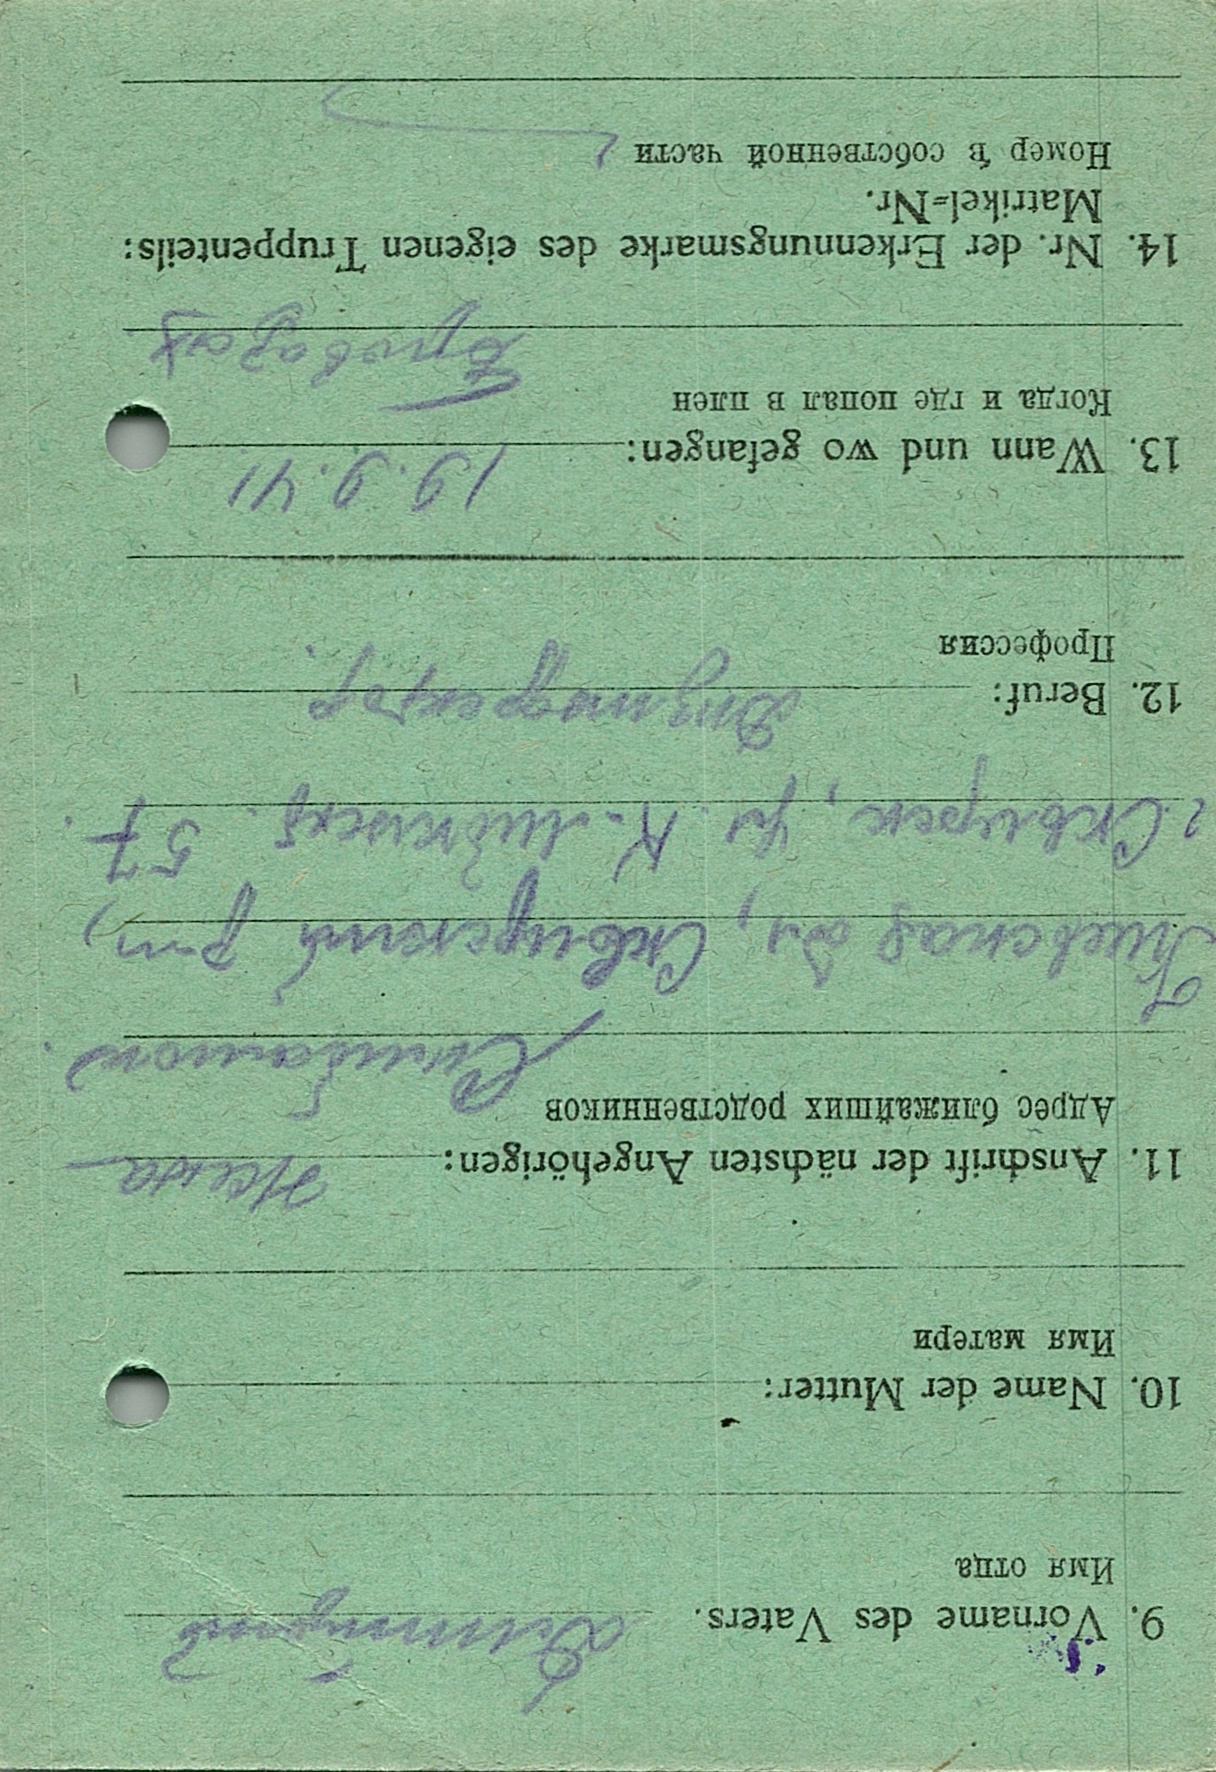 9. Vorname des Vaters.
Имя отца
10. Name der Mutter:
Имя матери
11. Anschrift der nächsten Angehörigen: жена
Адрес ближайших родственников
Киевская обл, Сквирский р-н,
г. Сквирск, ул. К. Либкнехт. 57.
12. Beruf:
Профессия
13. Wann und wo gefangen: 19.9.41
Когда и где попал в плен
14. Nr. der Erkennungsmarke des eigenen Truppenteils:
Matrikel=Nr.
Номер в собственной части